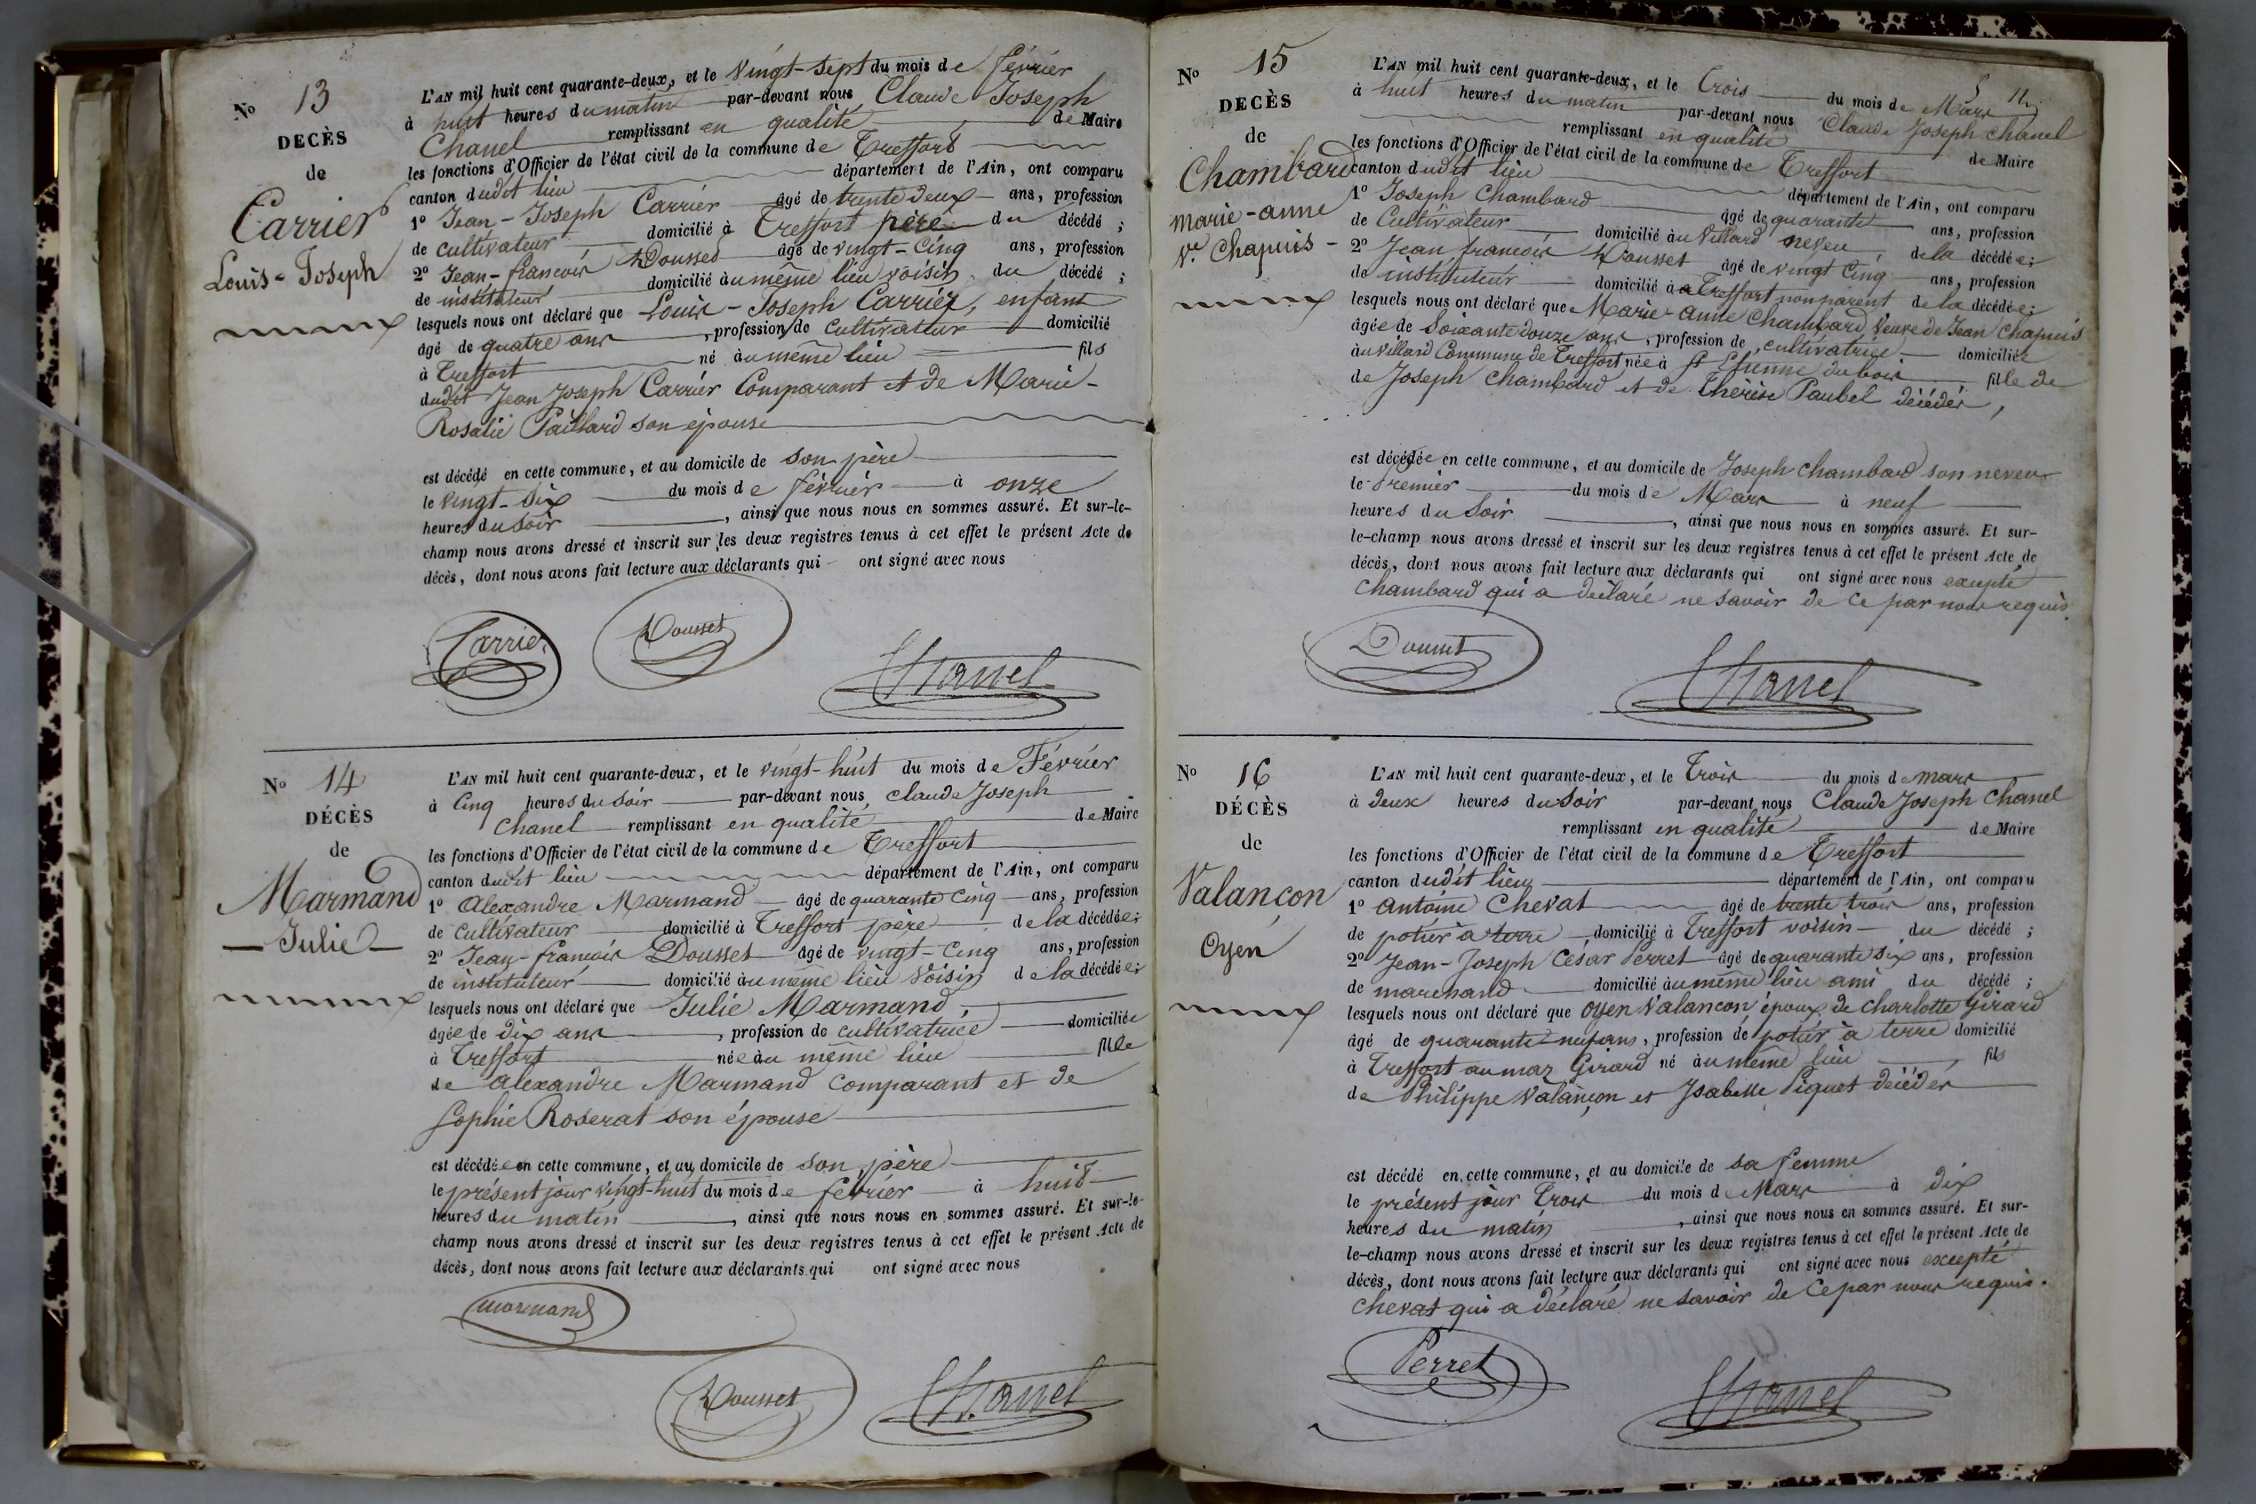 No 13
DECÈS
de
Carrier
Louis-Joseph
L'AN mil huit cent quarante-deux, et le vingt-sept du mois de février
à huit heures du matin par-devant nous Claude Joseph
Chanel remplissant en qualité de Maire
les fonctions d'Officier de l'état civil de la commune de Treffort
canton dudit lieu département de l'Ain, ont comparu
1o Jean-Joseph Carrier âgé de trente deux ans, profession
de cultivateur domicilié à Treffort père du décédé ;
2o Jean-francois Dousset âgé de vingt-cinq ans, profession
de instituteur domicilié au même lieu voisin du décédé ;
lesquels nous ont déclaré que Louis-Joseph Carrier, enfant
âgé de quatre ans, profession de cultivateur domicilié
à Treffort né au même lieu fils
dudit Jean Joseph Carrier Comparant et de Marie-
Rosalie Paillard son épouse
est décédé en cette commune, et au domicile de son père
le vingt-six du mois de février à onze
heures du soir, ainsi que nous nous en sommes assuré. Et sur-le-
champ nous avons dressé et inscrit sur les deux registres tenus à cet effet le présent Acte de
décès, dont nous avons fait lecture aux déclarants qui ont signé avec nous
Carrier
Dousset
Chanel
No 14
DÉCÈS
de
Marmand
Julie
L'AN mil huit cent quarante-deux, et le vingt-huit du mois de Février
à Cinq heures du soir par-devant nous Claude Joseph
Chanel remplissant en qualité de Maire
les fonctions d'Officier de l'état civil de la commune de Treffort
canton dudit lieu département de l'Ain, ont comparu
1o Alexandre Marmand âgé de quarante cinq ans, profession
de cultivateur domicilié à Treffort père de la décédée ;
2o Jean-francois Dousset âgé de vingt-cinq ans, profession
de instituteur domicilié au même lieu voisin de la décédée ;
lesquels nous ont déclaré que Julie Marmand,
âgée de dix ans, profession de cultivatrice domiciliée
à Treffort née au même lieu fille
de alexandre Marmand comparant et de
Sophie Roserat son épouse
est décédée en cette commune, et au domicile de son père
le présent jour vingt-huit du mois de février à huit
heures du matin, ainsi que nous nous en sommes assuré. Et sur-le-
champ nous avons dressé et inscrit sur les deux registres tenus à cet effet le présent Acte de
décès, dont nous avons fait lecture aux déclarants qui ont signé avec nous
marmand
Dousset
Chanel
No 15
DECÈS
de
Chambard
marie-anne
Ve Chapuis
L'AN mil huit cent quarante-deux, et le trois du mois de Mars
à huit heures du matin par-devant nous Claude Joseph Chanel
remplissant en qualité de Maire
les fonctions d'Officier de l'état civil de la commune de Treffort
canton dudit lieu département de l'Ain, ont comparu
1o Joseph Chambard âgé de quarante ans, profession
de Cultivateur domicilié au Villard neveu de la décédée ;
2o Jean francois Dousset âgé de vingt cinq ans, profession
de instituteur domicilié à Treffort non parent de la décédée ;
lesquels nous ont déclaré que Marie-anne Chambard, veuve de Jean Chapuis
âgée de Soixante douze ans, profession de cultivatrice domiciliée
au Villard Commune de Treffort née à St Etienne du bois fille de
de Joseph Chambard et de Thérèse Paubel décédés,
est décédée en cette commune, et au domicile de Joseph Chambard son neveu
le premier du mois de Mars à neuf
heures du Soir, ainsi que nous nous en sommes assuré. Et sur-
le-champ nous avons dressé et inscrit sur les deux registres tenus à cet effet le présent Acte de
décès, dont nous avons fait lecture aux déclarants qui ont signé avec nous excepté
Chambard qui a déclaré ne savoir de ce par nous requis.
Dousset
Chanel
No 16
DÉCÈS
de
Valançon
Oyen
L'AN mil huit cent quarante-deux, et le Trois du mois de mars
à deux heures du Soir par-devant nous Claude Joseph Chanel
remplissant en qualité de Maire
les fonctions d'Officier de l'état civil de la commune de Treffort
canton dudit lieu département de l'Ain, ont comparu
1o antoine Chevat âgé de trente trois ans, profession
de potier à terre domicilié à Treffort voisin du décédé ;
2o Jean-Joseph César Perret âgé de quarante six ans, profession
de marchand domicilié au même lieu ami du décédé ;
lesquels nous ont déclaré que Oyen Valançon époux de Charlotte Girard
âgé de quarante-neuf ans, profession de potier à terre domicilié
à Treffort au maz Girard né au même lieu fils
de Philippe Valançon et Isabelle Piquet décédés
est décédé en cette commune, et au domicile de sa femme
le présent jour trois du mois de Mars à dix
heures du matin, ainsi que nous nous en sommes assuré. Et sur-
le-champ nous avons dressé et inscrit sur les deux registres tenus à cet effet le présent Acte de
décès, dont nous avons fait lecture aux déclarants qui ont signé avec nous excepté
Chevat qui a déclaré ne savoir de ce par nous requis.
Perret
Chanel